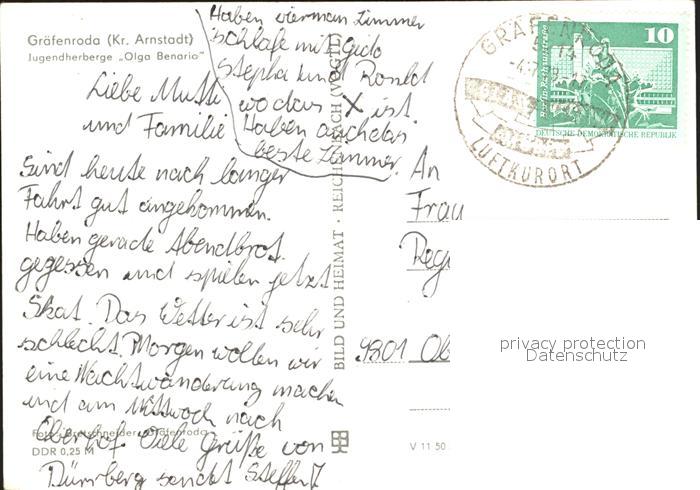 Gräfenroda (Kr. Arnstadt)
Jugendherberge „Olga Benario"
Haben vierman Zimmer
schlafe mit Gido
Stephan und Ronald
wo das X ist.
Haben auch das
beste Zimmer.
Liebe Mutti
und Familie
Sind heute nach langer
Fahrt gut angekommen.
Haben gerade Abendbrot
gegessen und spielen jetzt
Skat. Das Wetter ist sehr
schlecht. Morgen wollen wir
eine Nachtwanderung machen
und am Mittwoch nach
Oberhof. Viele Grüße von
sendet Steffen
Gräfenroda
DDR 0,25 M
BILD UND HEIMAT · REICHENBACH (VOGTL)
V 11 50
GRÄFENRODA
LUFTKURORT
10
DEUTSCHE DEMOKRATISCHE REPUBLIK
An
Frau
Reg
9301 Ob
privacy protection
Datenschutz